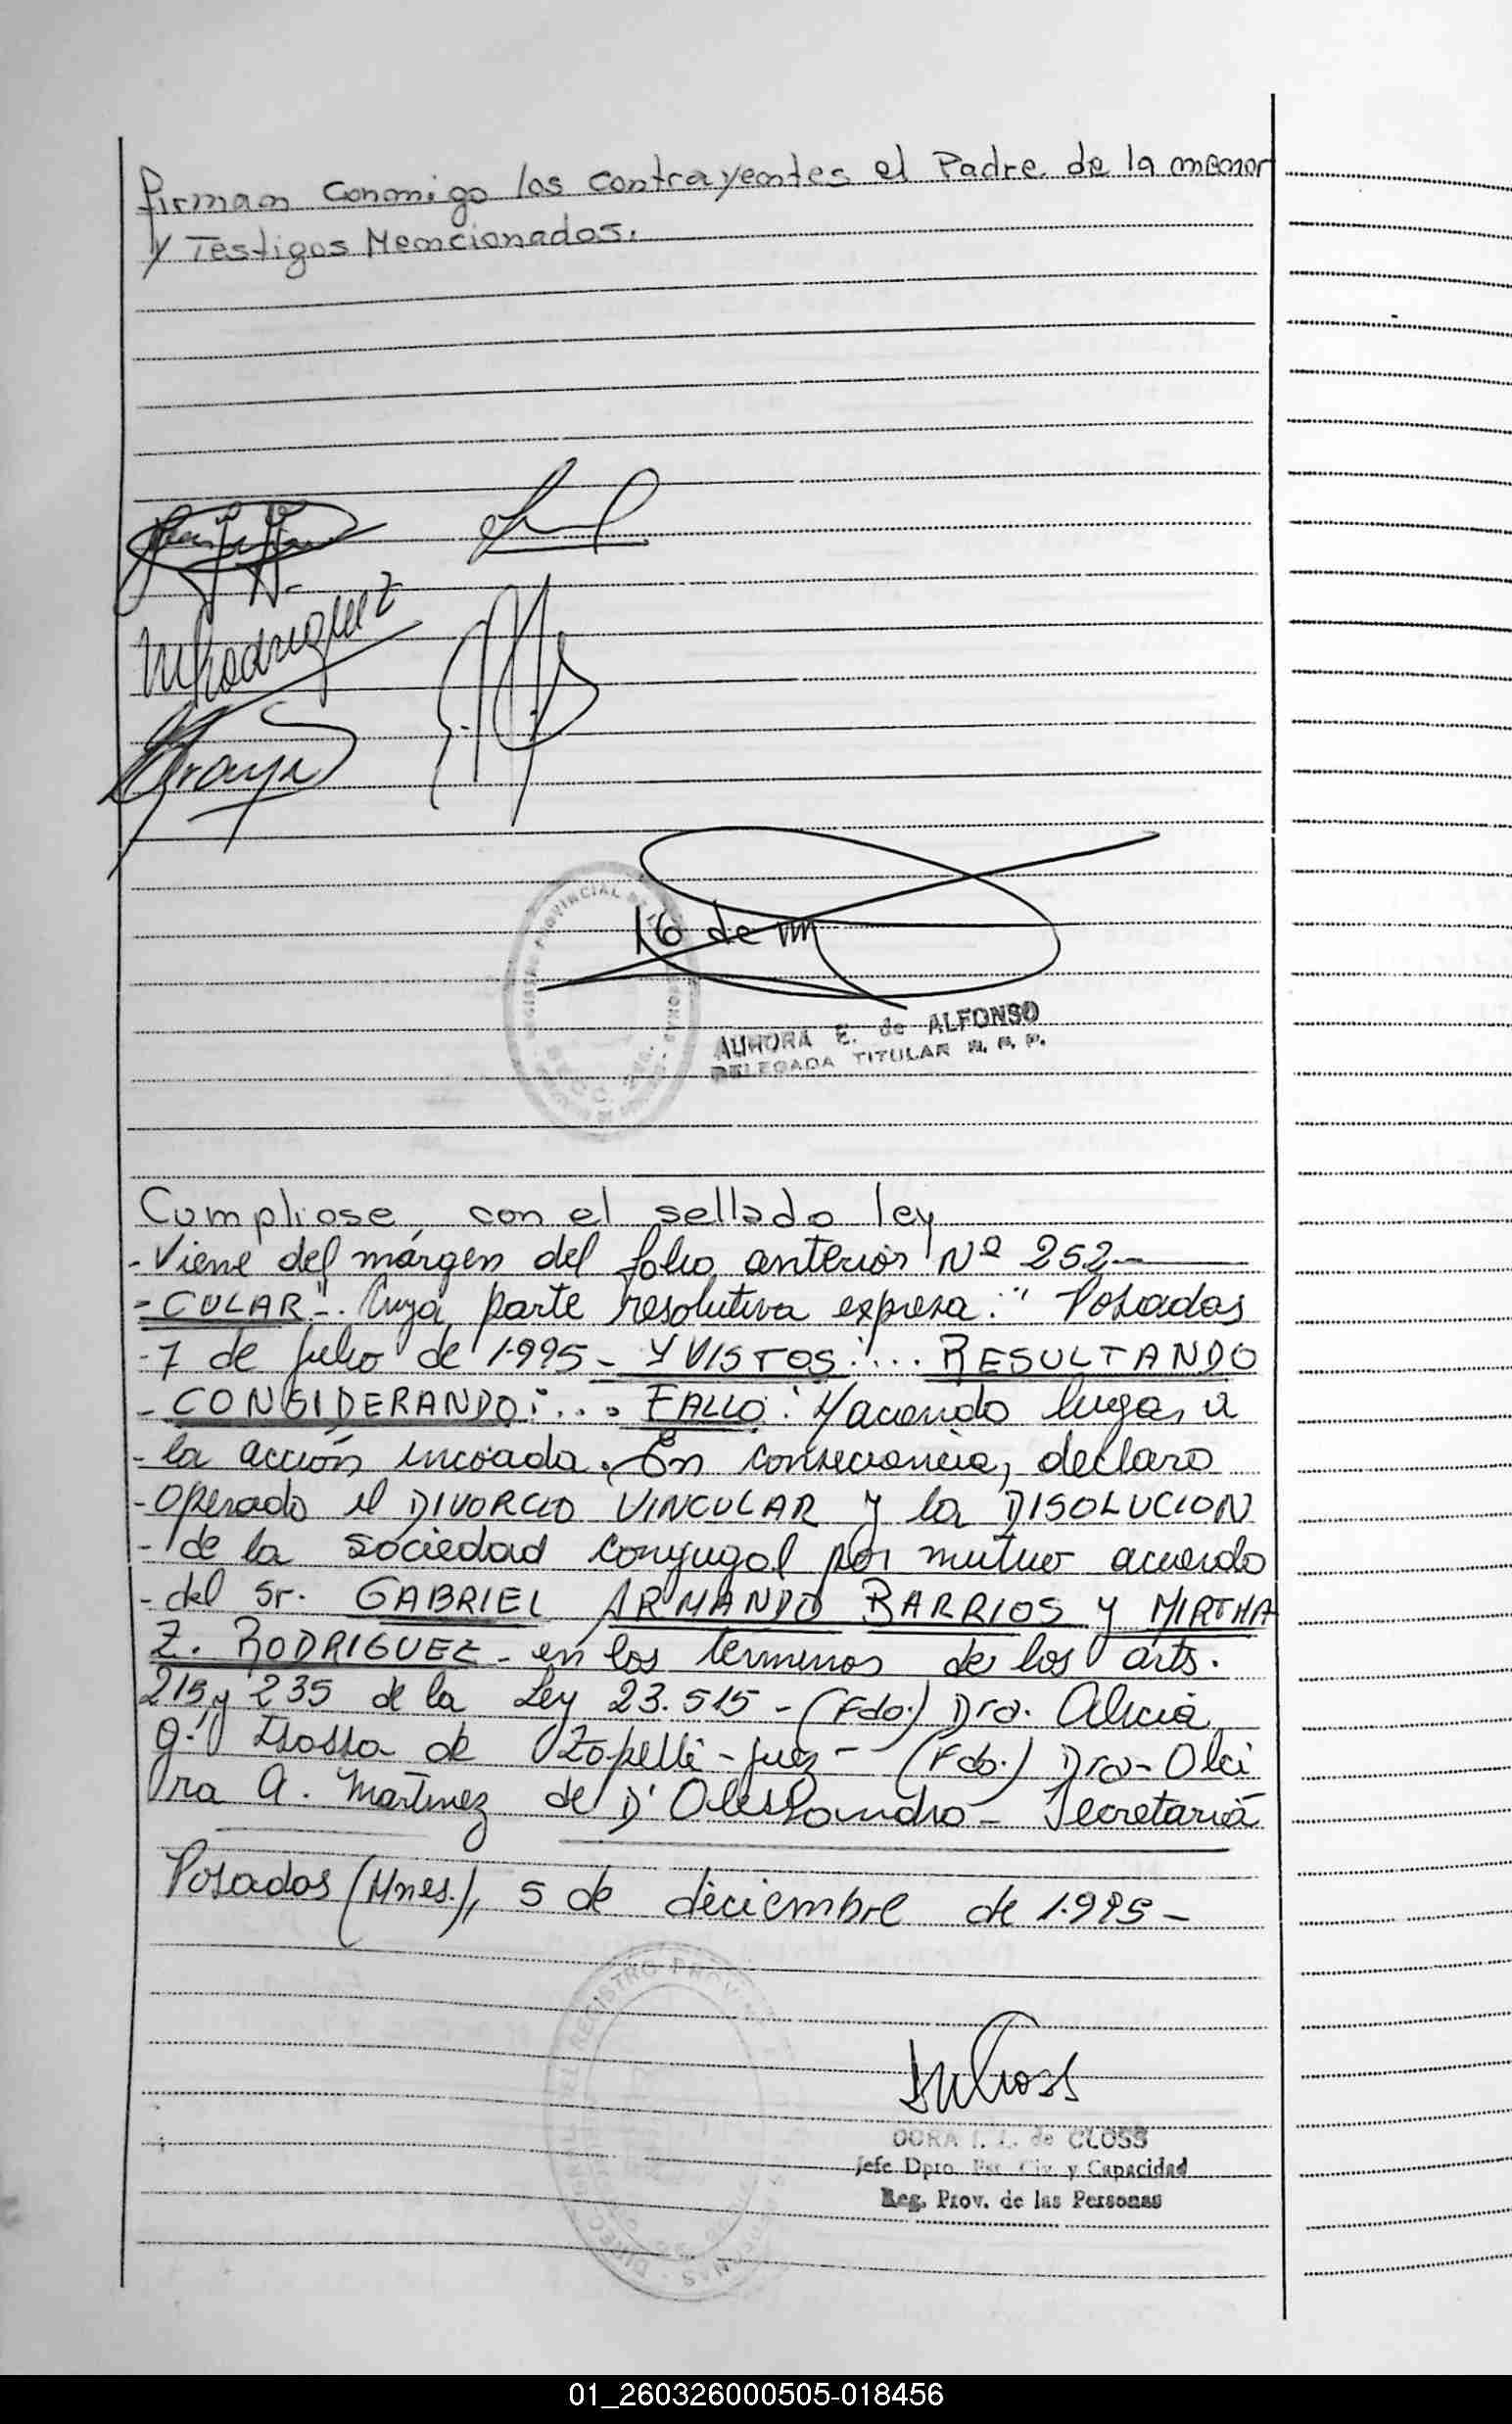 Firman Conmigo los contrayentes el Padre de la menor
y Testigos Mencionados.
MRodriguez
16 de m
AURORA E. de ALFONSO
DELEGADA TITULAR R. P. P.
Cumpliose, con el sellado ley
- Viene del márgen del folio anterior Nº 252
- CULAR". Cuya parte resolutiva expresa: " Posadas
- 7 de julio de 1.995 - Y VISTOS:... RESULTANDO
- CONSIDERANDO:... FALLO: Haciendo lugar a
- la acción incoada. En consecuencia, declaro
- operado el DIVORCIO VINCULAR y la DISOLUCION
- de la sociedad conyugal por mutuo acuerdo
- del Sr. GABRIEL ARMANDO BARRIOS y MIRTHA
Z. RODRIGUEZ - en los terminos de los arts.
215 y 235 de la Ley 23.515 - (Fdo.) Dra. Alicia
de - juez - (Fdo.) Dra - Alci
ra A. Martinez de D'Alessandro - Secretaria
Posadas (Mnes.), 5 de diciembre de 1.995 -
DORA I. L. de CLOSS
Jefe Dpto. Est. Civ. y Capacidad
Reg. Prov. de las Personas
01_260326000505-018456